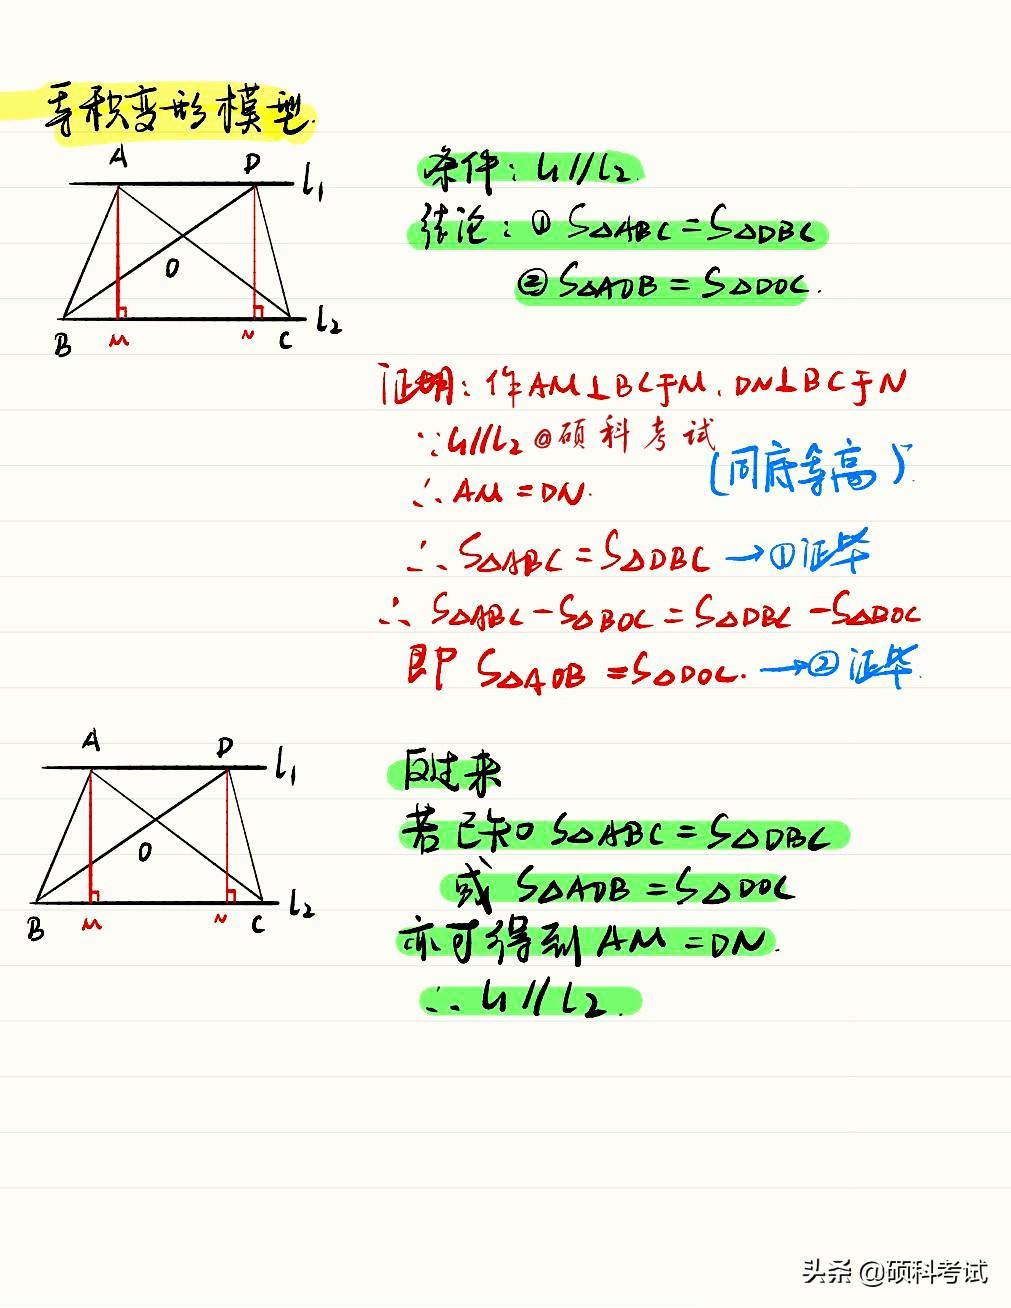 等积变形模型.
A D l₁
O
B M N C l₂
条件: l₁//l₂.
结论: ① S△ABC=S△DBC
② S△AOB=S△DOC.
证明: 作AM⊥BC于M, DN⊥BC于N
∵l₁//l₂ @硕科考试
(同底等高)
∴AM=DN.
∴S△ABC=S△DBC→①证毕
∴S△ABC-S△BOC=S△DBC-S△BOC
即 S△AOB=S△DOC. →②证毕.
A D l₁
O
B M N C l₂
反过来
若已知 S△ABC=S△DBC
或 S△AOB=S△DOC
亦可得到 AM=DN.
∴l₁//l₂.
头条 @硕科考试